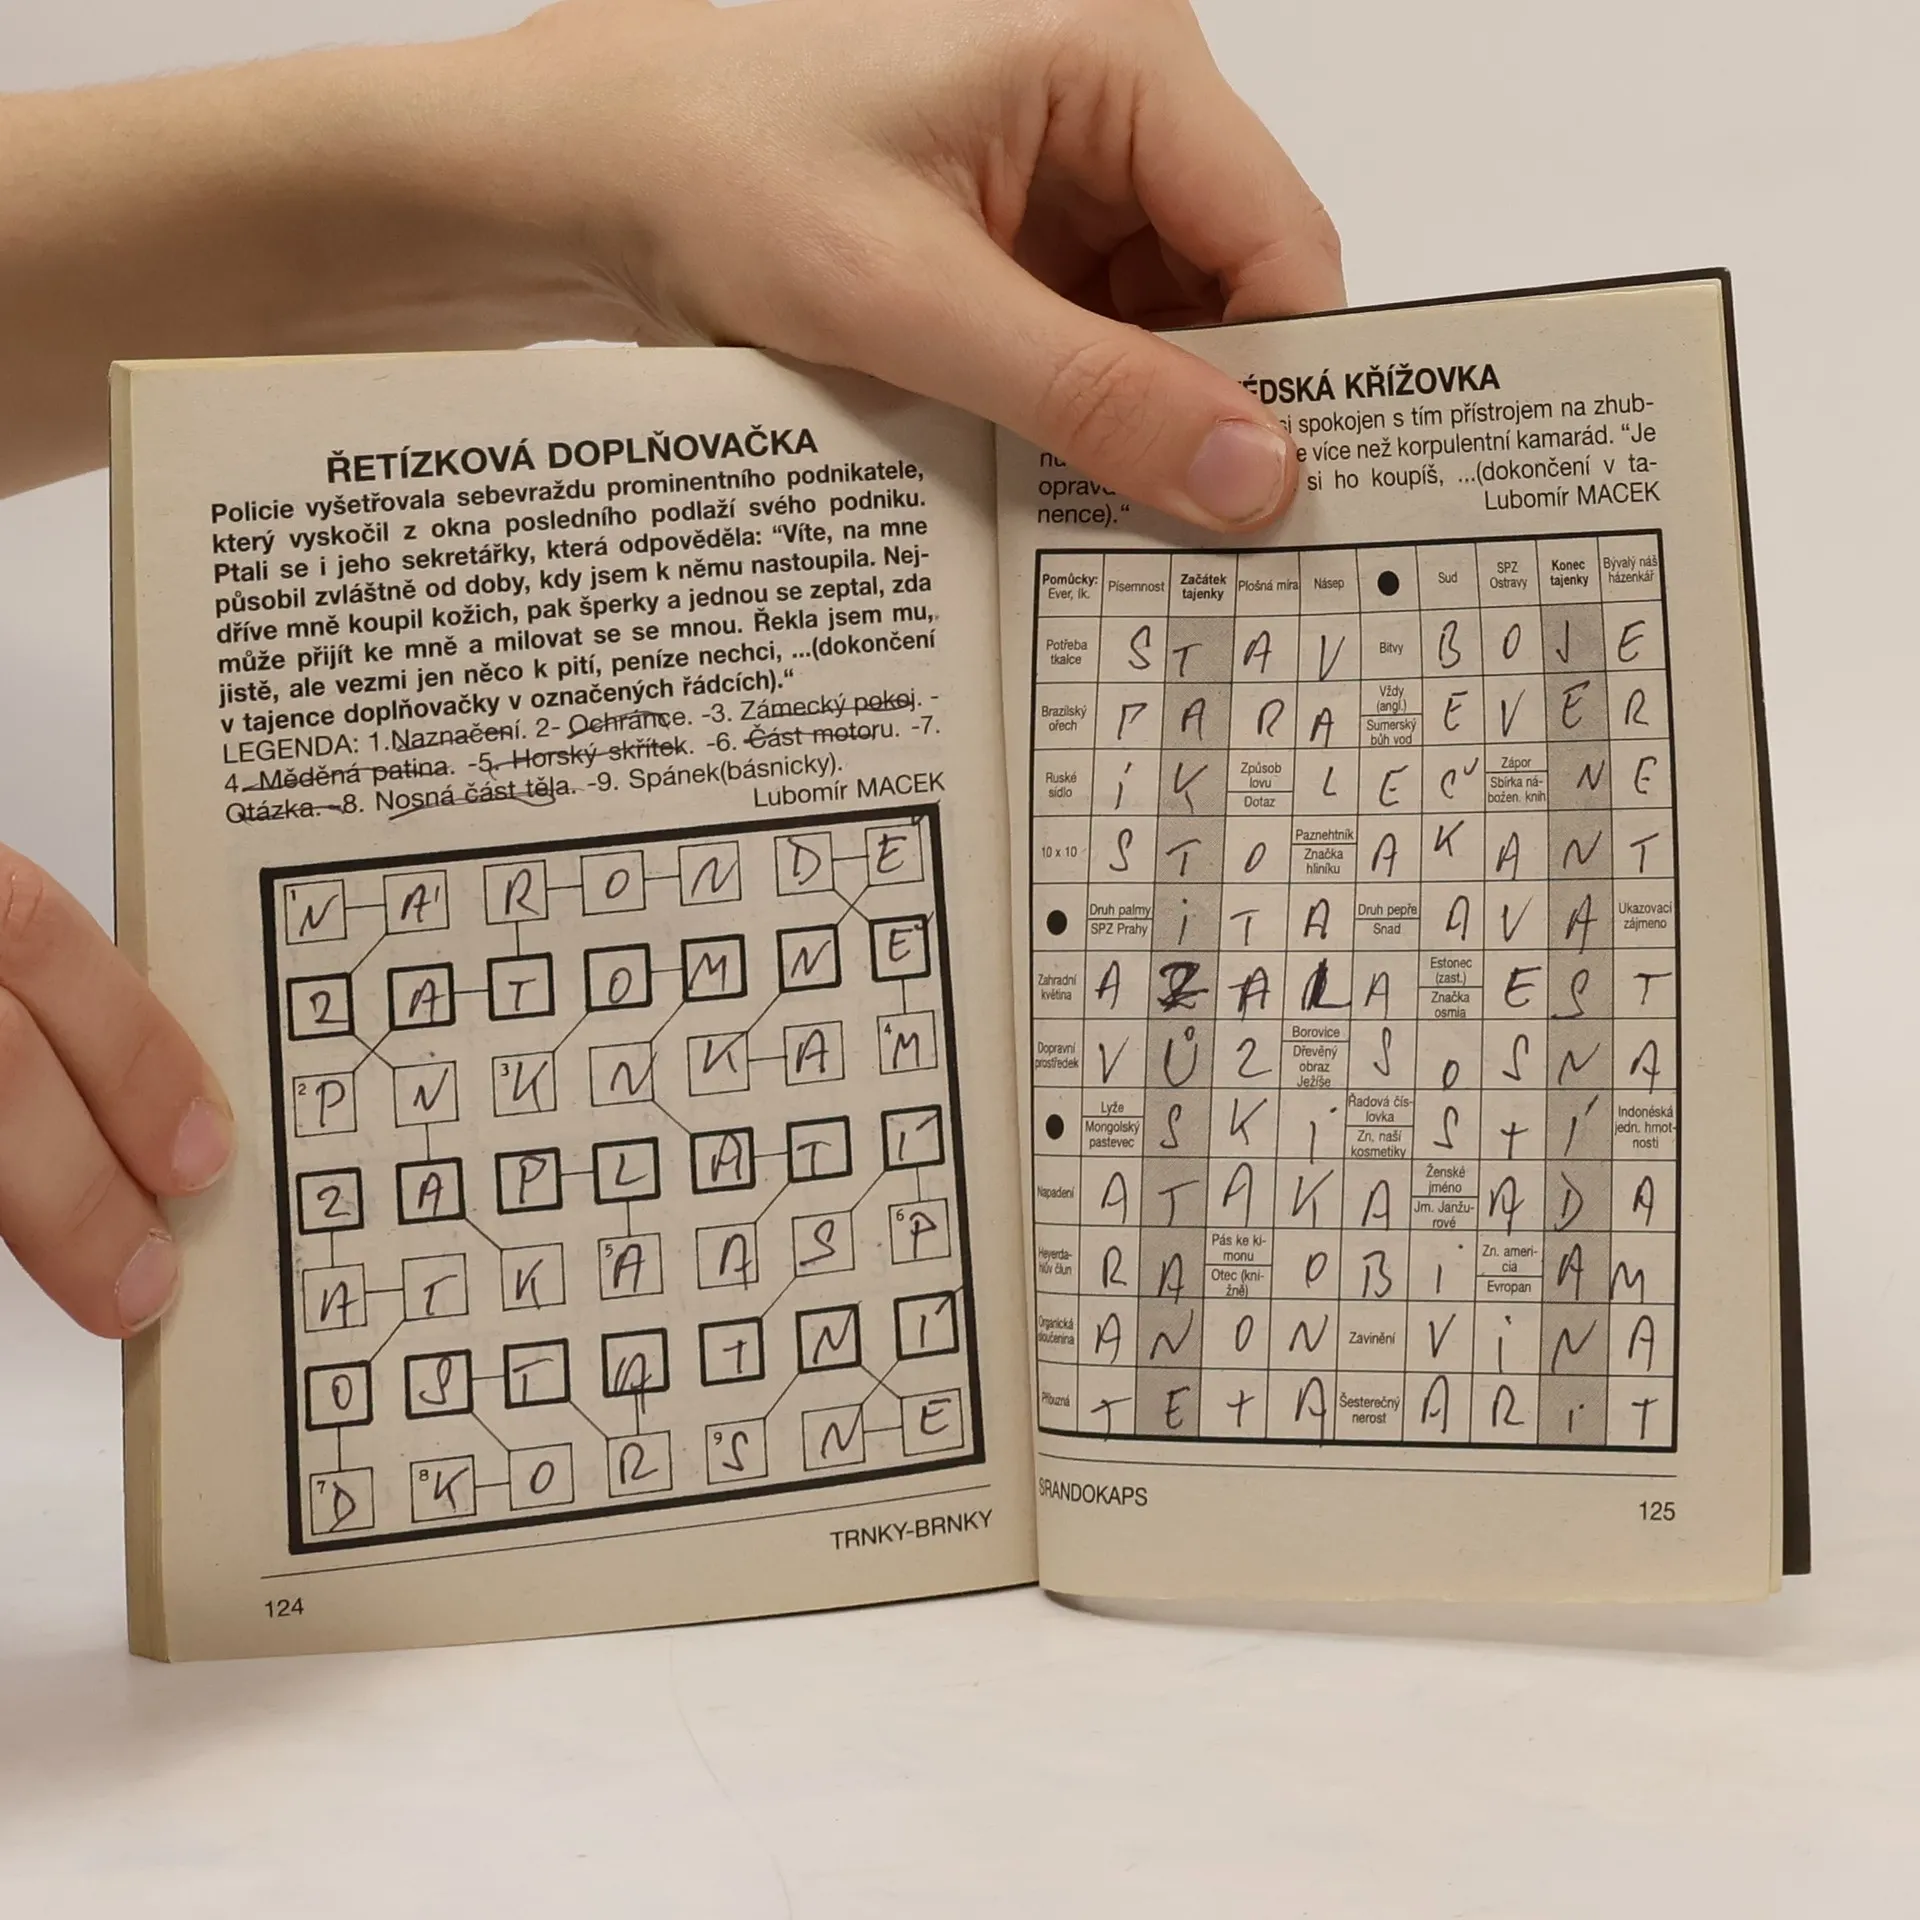 ŘETÍZKOVÁ DOPLŇOVAČKA
Policie vyšetřovala sebevraždu prominentního podnikatele,
který vyskočil z okna posledního podlaží svého podniku.
Ptali se i jeho sekretářky, která odpověděla: “Víte, na mne
působil zvláštně od doby, kdy jsem k němu nastoupila. Nej-
dříve mně koupil kožich, pak šperky a jednou se zeptal, zda
může přijít ke mně a milovat se se mnou. Řekla jsem mu,
jistě, ale vezmi jen něco k pití, peníze nechci, ...(dokončení
v tajence doplňovačky v označených řádcích).“
LEGENDA: 1.Naznačení. 2- Ochránce. -3. Zámecký pokoj. -
4. Měděná patina. -5. Horský skřítek. -6. Část motoru. -7.
Otázka. -8. Nosná část těla. -9. Spánek(básnicky).
Lubomír MACEK
1 N Á R O N D Ě
Z A T O M N Ě
2 P N 3 K N K A 4 M
Z A P L A T Í
A T K 5 A A S 6 P
O S T A T N Í
7 D 8 K O R 9 S N E
TRNKY-BRNKY
124
ÉDSKÁ KŘÍŽOVKA
si spokojen s tím přístrojem na zhub-
e více než korpulentní kamarád. “Je
si ho koupíš, ...(dokončení v ta-
nence).“
Lubomír MACEK
Pomůcky: Ever, Ik. Písemnost Začátek tajenky Plošná míra Násep Sud SPZ Ostravy Konec tajenky Bývalý náš házenkář
Potřeba tkalce S T A V Bitvy B O J E
Brazilský ořech P A R A Vždy (angl.) Sumerský bůh vod E V E R
Ruské sídlo I K Způsob lovu Dotaz L E Č Zápor Sbírka ná- božen. knih N E
10 x 10 S T O Paznehtník Značka hliníku A K A N T
Druh palmy SPZ Prahy I T A Druh pepře Snad A V A Ukazovací zájmeno
Zahradní květina A Z A L A Estonec (zast.) Značka osmia E S T
Dopravní prostředek V Ů Z Borovice Dřevěný obraz Ježíše S O S N A
Lyže Mongolský pastevec S K I Řadová čís- lovka Zn. naší kosmetiky S T Í Indonéská jedn. hmot- nosti
Napadení A T A K A Ženské jméno Jm. Janžu- rové A D A
Heyerda- hlův člun R A Pás ke ki- monu Otec (kni- žně) O B I Zn. ameri- cia Evropan A M
Organická sloučenina A N O N Zavinění V I N A
Příbuzná T E T A Šesterečný nerost A R I T
SRANDOKAPS
125